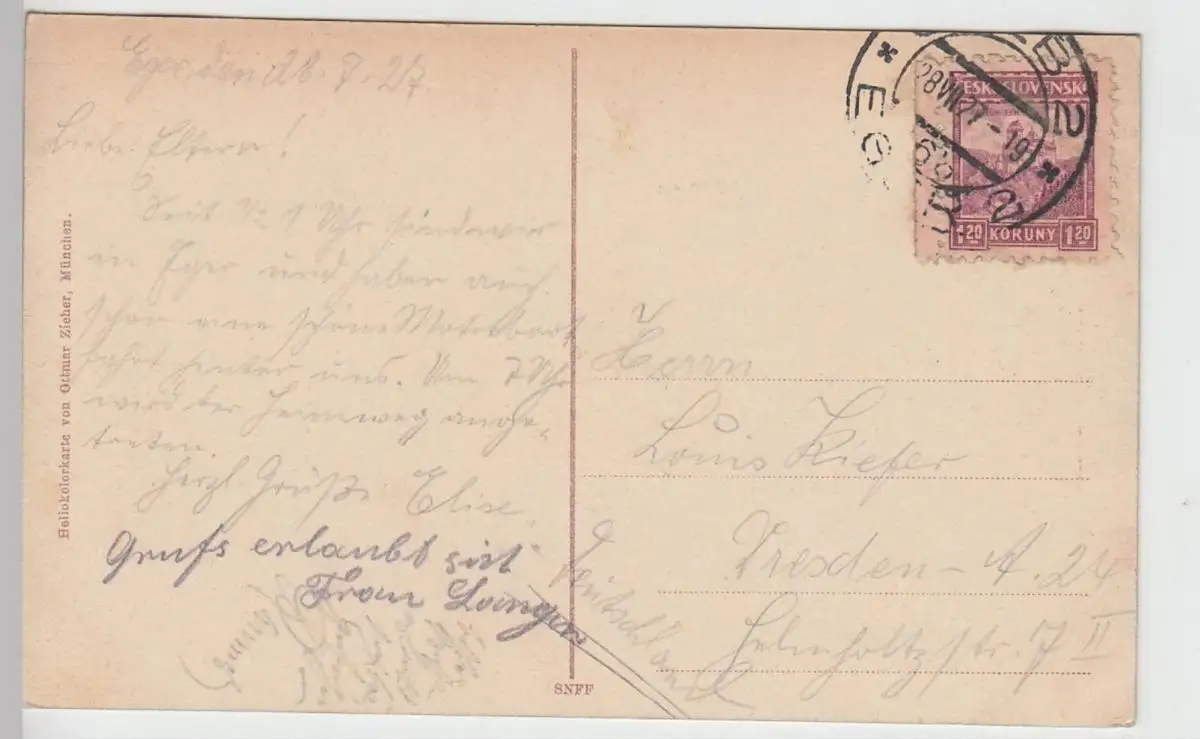 Eger, den 28.7.27.
Liebe Eltern!
Seit 1/2 1 Uhr sind wir
in Eger und haben auch
schon eine schöne Motorboot
fahrt hinter uns. Um 7 Uhr
wird der Heimweg ange-
treten.
Herzl. Grüße Elise.
Gruß erlaubt sich
Frau Langer
Heliokolorkarte von Ottmar Zieher, München.
SNFF
ČESKOSLOVENSKO
1.20 KORUNY 1.20
28.VII.27-19
Herrn
Louis Kiefer
Dresden - A. 24
Helmholtzstr. 7 II
Deutschland